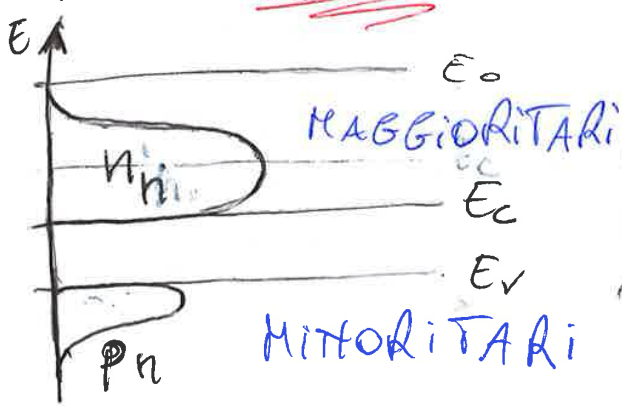 E
E₀
MAGGIORITARI
nₙ
E_C
E_V
MINORITARI
pₙ